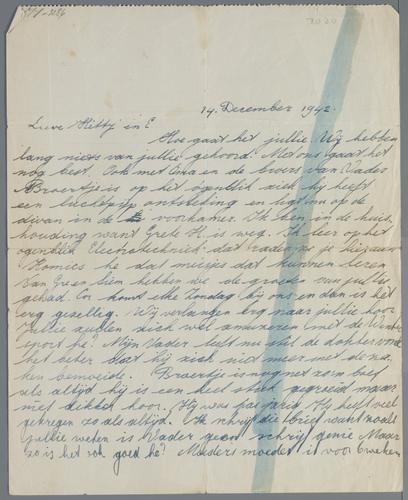 14. December 1942.
Lieve Hetty en E
Hoe gaat het jullie. Wij hebben
lang niets van jullie gehoord. Met ons gaat het
nog best. Ook met Oma en de broers van Vader
Broertje is op het ogenblik ziek hij heeft
een luchtpijp ontsteking en ligt nu op de
divan in de voorkamer. Ik ben in de huis
houding want Grete H. is weg. Ik leer op het
ogenblik Electrotechniek dat
he dat meisjes dat kunnen leren
Van hebben we de groeten van jullie
gehad. En komt elke Zondag bij ons en dan is het
erg gezellig. Wij verlangen erg naar jullie hoor
Jullie zullen zich wel amuseren met de Winter
sport he? Mijn Vader
het beter dat hij zich niet meer met de za
ken bemoeide. Broertje is nog net zo'n boef
als altijd hij is een heel stuk gegroeid maar
niet dikker hoor. Hij was pas jarig. Hij heeft veel
gekregen zo als altijd. Ik schrijf die brief want zoals
jullie weten is Vader geen schrijf genie Maar
zo is het ook goed he? Moeders moeder is voor 6 weken